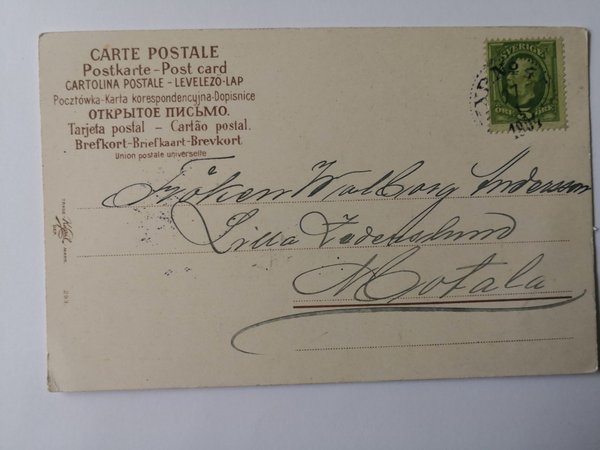 CARTE POSTALE
Postkarte – Post card
CARTOLINA POSTALE – LEVELEZÖ-LAP
Pocztówka-Karta korespondencyjna-Dopisnice
ОТКРЫТОЕ ПИСЬМО.
Tarjeta postal – Cartão postal.
Brefkort-Briefkaart-Brevkort
Union postale universelle
SVERIGE
1907
Fröken Walborg Andersson
Lilla
Motala
TRADE MARK
293